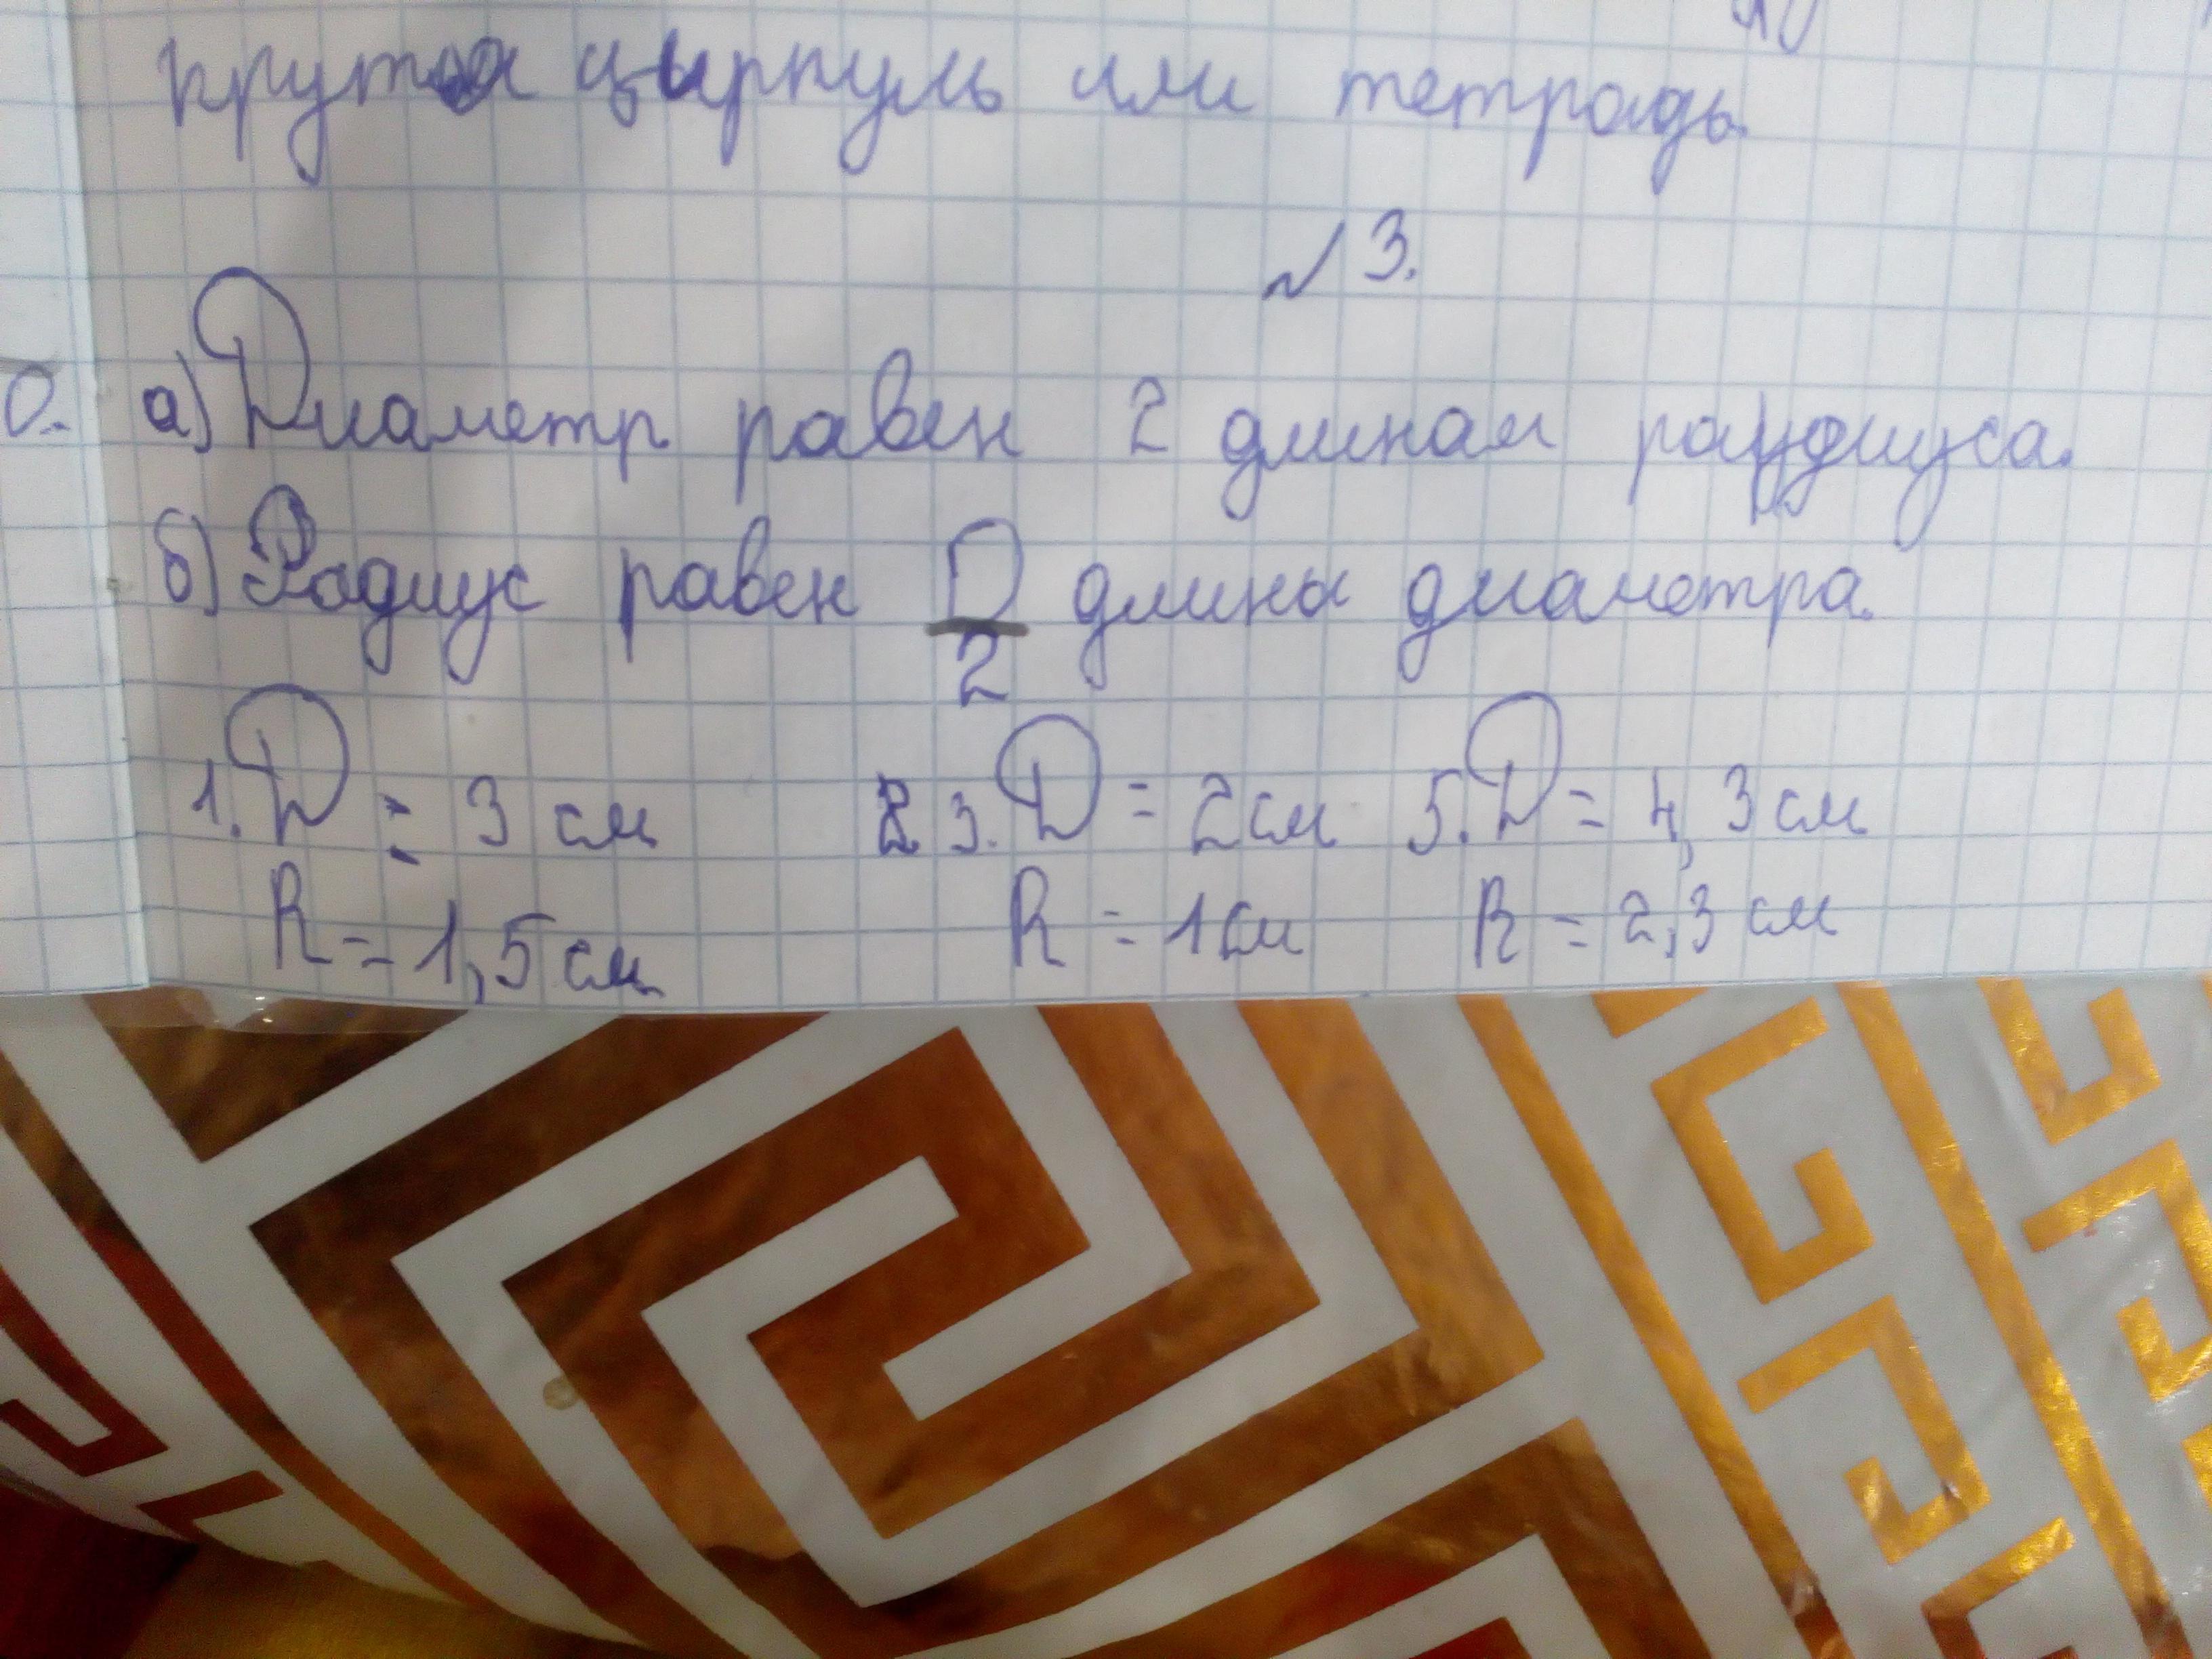 крутя цыркуль или тетрадь.
№ 3.
а) Диаметр равен 2 длинам радиуса.
б) Радиус равен D/2 длины диаметра.
1. D = 3 см 3. D = 2см 5. D = 4,3см
R = 1,5см R = 1см R = 2,3 см